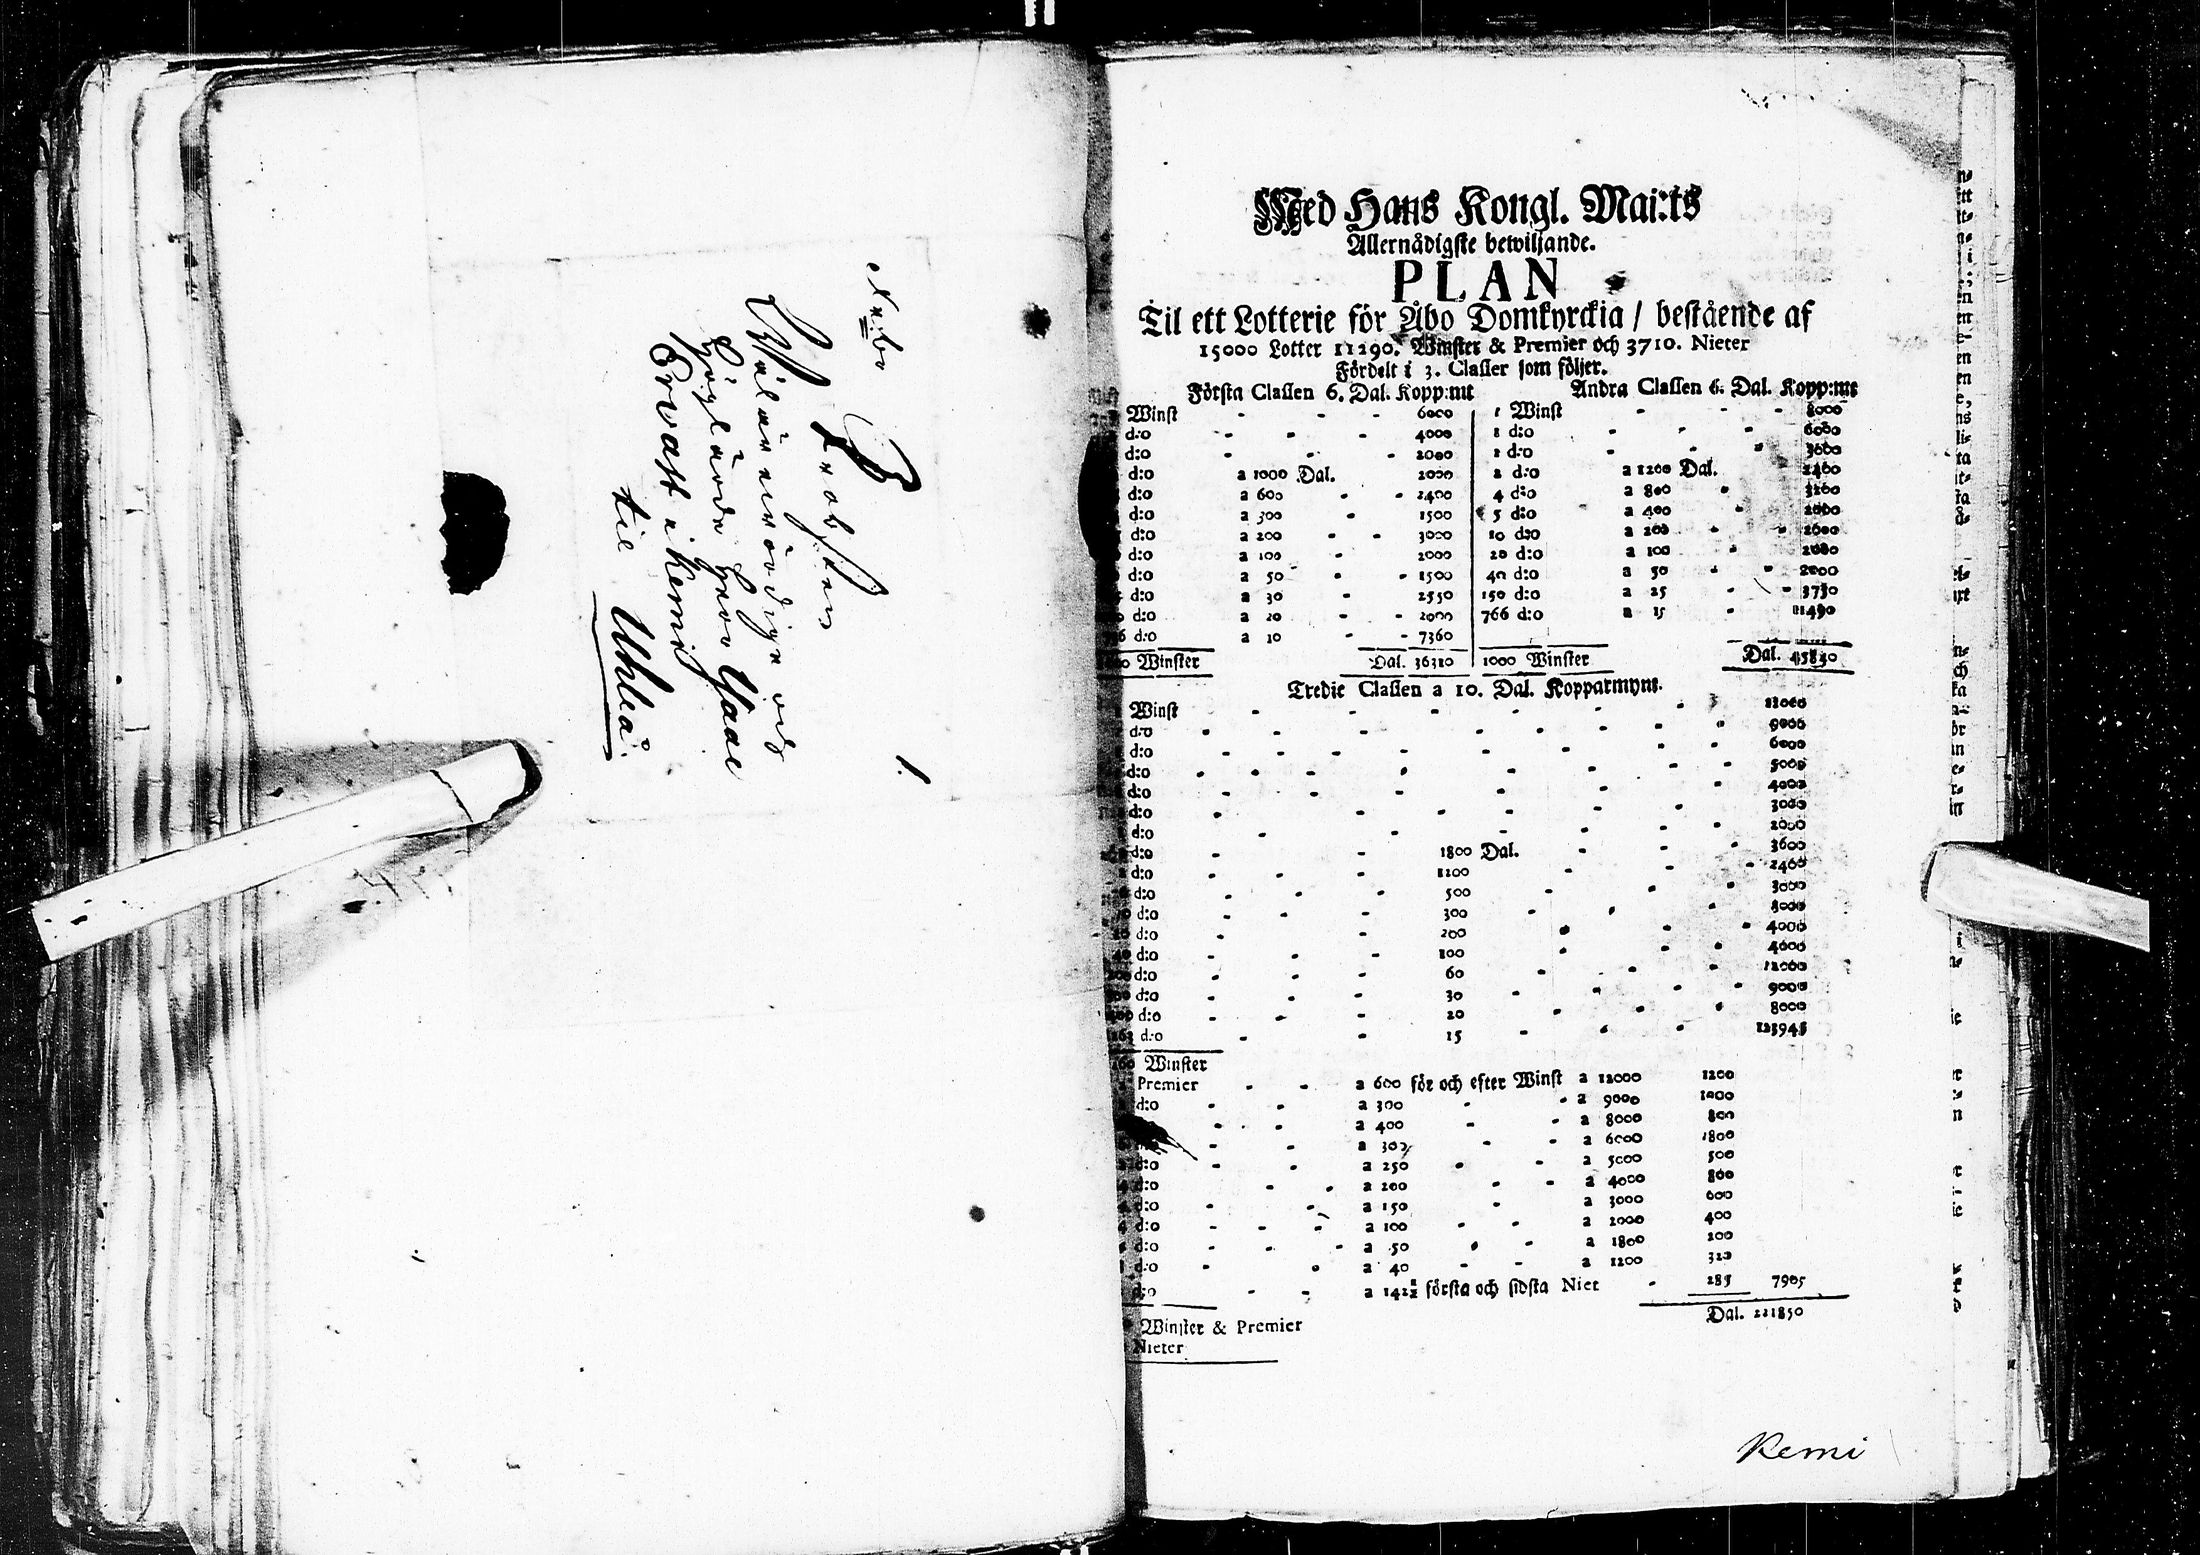 Nebo
Probsten
Wälärewördige och
Höglärde Herr Isaac
Ervast i Kemi
til Uhleå.
1.
Med Hans Kongl. Mai:ts
Allernådigste bewiljande.
PLAN
Til ett Lotterie för Åbo Domkyrckia / bestående af
15000 Lotter 11290. Winster & Premier och 3710. Nieter
Fördelt i 3. Classer som följer.
Första Classen 6. Dal. Kopp:mt
Winst - - - 6000
d:o - - - 4000
d:o - - 2000
d:o a 1000 Dal. 2000
d:o a 600 - - 2400
d:o a 300 - 1500
d:o a 200 - - 3000
d:o a 100 - 2000
d:o a 50 - - 1500
d:o a 30 - 2550
d:o a 20 - - 2000
d:o a 10 - - 7360
Winster Dal. 36310
Andra Classen 6. Dal. Kopp:mt
1 Winst - - - 8000
1 d:o - - - 6000
1 d:o - - 3000
2 d:o a 1200 Dal. 2400
4 d:o a 800 - 3200
5 d:o a 400 - 2000
10 d:o a 200 - - 2000
20 d:o a 100 - 2000
40 d:o a 50 - - 2000
150 d:o a 25 - - 3750
766 d:o a 15 - 11490
1000 Winster Dal. 45840
Tredie Classen a 10. Dal. Kopparmynt.
Winst - - - - - - 12000
d:o - - - - - - 9000
d:o - - - - - - 6000
d:o - - - - - - 5000
d:o - - - - - 4000
d:o - - - - - 3000
d:o - - - - - 2000
d:o - - 1800 Dal. - - - 3600
d:o - - 1200 - - - 2400
d:o - - 500 - - - 3000
d:o - - 300 - - - 3000
d:o - - 200 - - - 4000
d:o - - 100 - - - 4000
d:o - - 60 - - - 12000
d:o - - 30 - - - 9000
d:o - - 20 - - - 8000
d:o - - 15 - - - 123945
Winster
Premier - - a 600 för och efter Winst a 12000 1200
d:o - - a 500 - - a 9000 1000
- - a 400 - - a 8000 800
- - a 300 - - a 6000 1800
d:o - - a 250 - - a 5000 500
d:o - - a 200 - - a 4000 800
d:o - - a 150 - a 3000 600
d:o - - - a 100 - - a 2000 400
d:o - - - a 50 - - a 1800 200
d:o - - a 40 - - a 1200 320
d:o - - a 142½ första och sidsta Niet - 285 7905
Dal. 221850
Winster & Premier
Nieter
Kemi